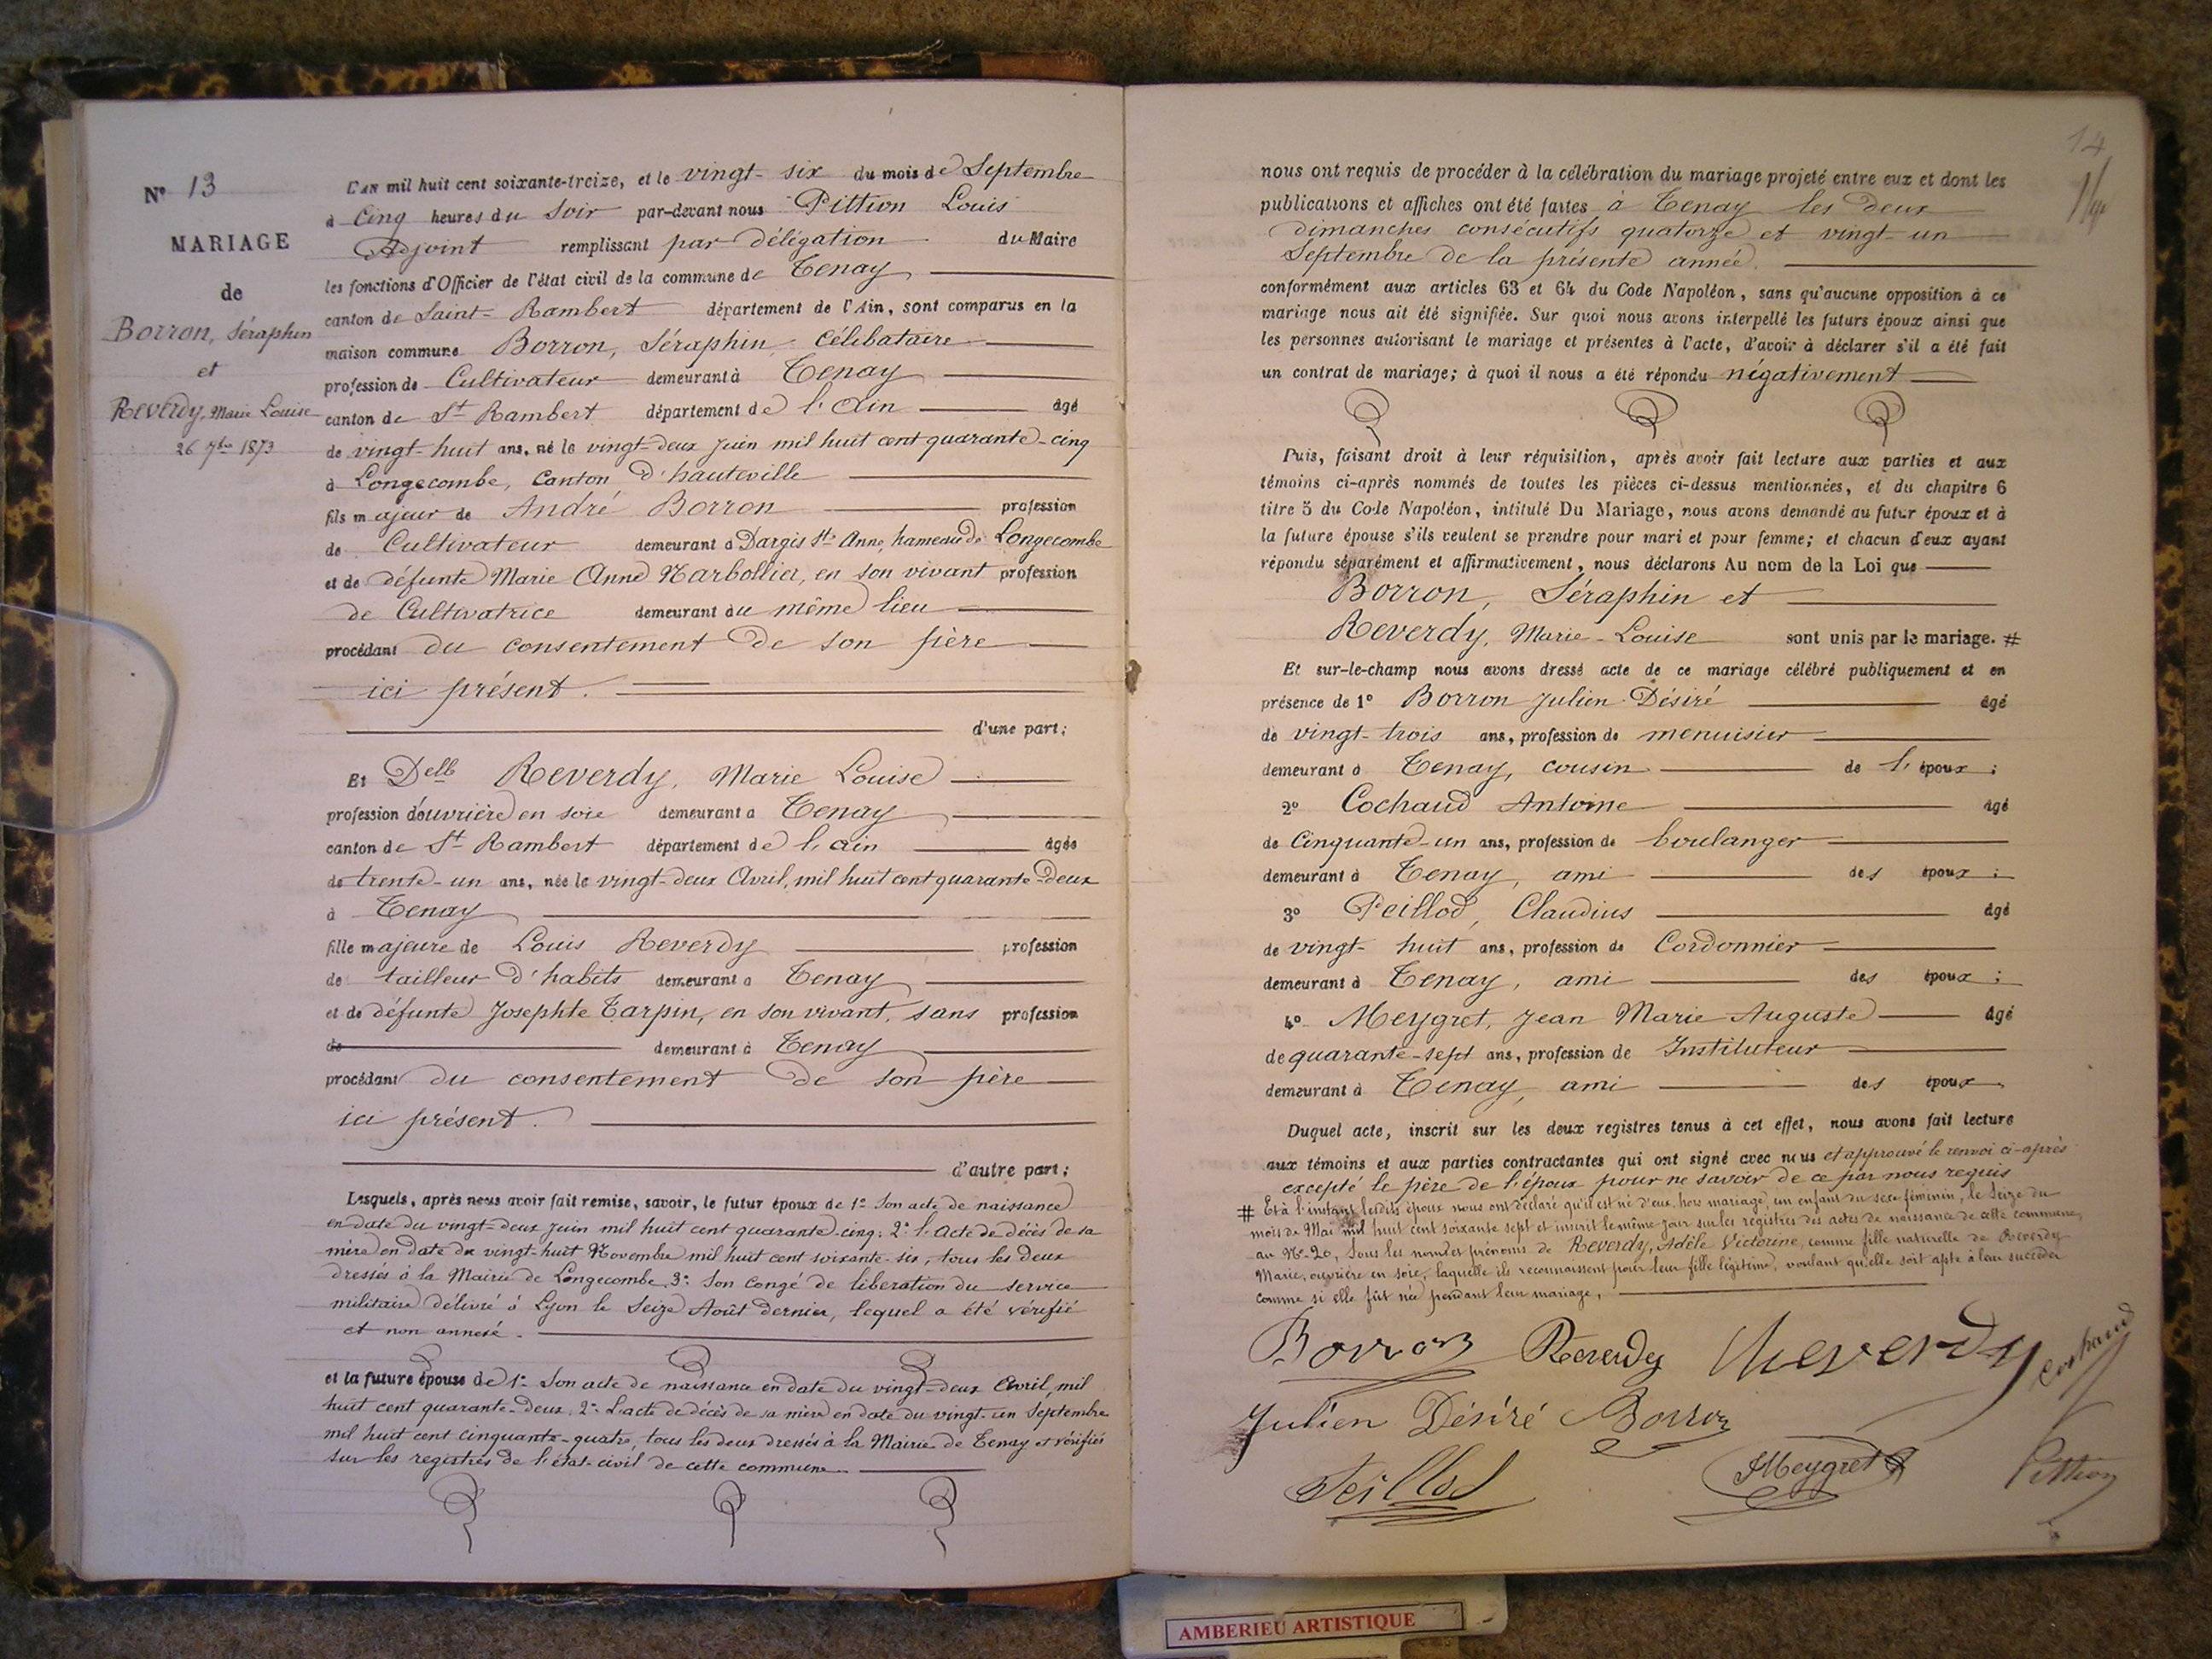 N° 13
MARIAGE
de
Borron, Séraphin
et
Reverdy, Marie Louise
26 7bre 1873
L'AN mil huit cent soixante-treize, et le vingt-six du mois de Septembre
à Cinq heures du Soir par-devant nous Pittion Louis
Adjoint remplissant par délégation du Maire
les fonctions d'Officier de l'état civil de la commune de Tenay
canton de Saint-Rambert département de l'Ain, sont comparus en la
maison commune Borron, Séraphin, Célibataire
profession de Cultivateur demeurant à Tenay
canton de St Rambert département de l'Ain âgé
de vingt-huit ans, né le vingt-deux Juin mil huit cent quarante-cinq
à Longecombe, Canton d'hauteville
fils majeur de André Borron profession
de Cultivateur demeurant à Dargis Ste Anne, hameau de Longecombe
et de défunte Marie Anne Narbollier, en son vivant profession
de Cultivatrice demeurant au même lieu
procédant du consentement de son père
ici présent.
d'une part;
Et Delle Reverdy, Marie Louise
profession d'ouvrière en soie demeurant à Tenay
canton de St Rambert département de l'ain âgée
de trente-un ans, née le vingt-deux Avril, mil huit cent quarante-deux
à Tenay
fille majeure de Louis Reverdy profession
de tailleur d'habits demeurant à Tenay
et de défunte Josephte Tarpin, en son vivant, sans profession
de demeurant à Tenay
procédant du consentement de son père
ici présent.
d'autre part;
Lesquels, après nous avoir fait remise, savoir, le futur époux de 1° Son acte de naissance
en date du vingt-deux Juin mil huit cent quarante-cinq; 2° l'acte de décès de sa
mère en date du vingt-huit Novembre mil huit cent soixante-six, tous les deux
dressés à la Mairie de Longecombe, 3° Son Congé de libération du service
militaire délivré à Lyon le Seize Août dernier, lequel a été vérifié
et non annexé.
et la future épouse de 1° Son acte de naissance en date du vingt-deux Avril, mil
huit cent quarante-deux, 2° L'acte de décès de sa mère en date du vingt-un Septembre
mil huit cent cinquante-quatre, tous les deux dressés à la Mairie de Tenay et vérifiés
sur les registres de l'état-civil de cette commune.
14
nous ont requis de procéder à la célébration du mariage projeté entre eux et dont les
publications et affiches ont été faites à Tenay les deux
dimanches consécutifs quatorze et vingt-un
Septembre de la présente année.
conformément aux articles 63 et 64 du Code Napoléon, sans qu'aucune opposition à ce
mariage nous ait été signifiée. Sur quoi nous avons interpellé les futurs époux ainsi que
les personnes autorisant le mariage et présentes à l'acte, d'avoir à déclarer s'il a été fait
un contrat de mariage; à quoi il nous a été répondu négativement
Puis, faisant droit à leur réquisition, après avoir fait lecture aux parties et aux
témoins ci-après nommés de toutes les pièces ci-dessus mentionnées, et du chapitre 6
titre 5 du Code Napoléon, intitulé Du Mariage, nous avons demandé au futur époux et à
la future épouse s'ils veulent se prendre pour mari et pour femme; et chacun d'eux ayant
répondu séparément et affirmativement, nous déclarons Au nom de la Loi que
Borron, Séraphin et
Reverdy, Marie-Louise sont unis par le mariage. #
Et sur-le-champ nous avons dressé acte de ce mariage célébré publiquement et en
présence de 1° Borron Julien Désiré âgé
de vingt-trois ans, profession de menuisier
demeurant à Tenay, cousin de l'époux;
2° Cochaud Antoine âgé
de Cinquante-un ans, profession de boulanger
demeurant à Tenay, ami des époux;
3° Peillod, Claudius âgé
de vingt-huit ans, profession de Cordonnier
demeurant à Tenay, ami des époux;
4° Meygret, Jean Marie Auguste âgé
de quarante-sept ans, profession de Instituteur
demeurant à Tenay, ami des époux
Duquel acte, inscrit sur les deux registres tenus à cet effet, nous avons fait lecture
aux témoins et aux parties contractantes qui ont signé avec nous et approuvé le renvoi ci-après
excepté le père de l'époux pour ne savoir de ce par nous requis
# Et à l'instant lesdits époux nous ont déclaré qu'il est né d'eux, hors mariage, un enfant du sexe féminin, le Seize du
mois de Mai mil huit cent soixante sept et inscrit le même jour sur les registres des actes de naissance de cette commune,
au N° 26, Sous les nom et prénoms de Reverdy, Adèle Victorine, comme fille naturelle de Reverdy
Marie, ouvrière en soie, laquelle ils reconnaissent pour leur fille légitime, voulant qu'elle soit apte à leur succéder
comme si elle fût née pendant leur mariage,
Borron Reverdy Reverdy Cochaud
Julien Désiré Borron
Peillod Meygret Pittion
AMBERIEU ARTISTIQUE